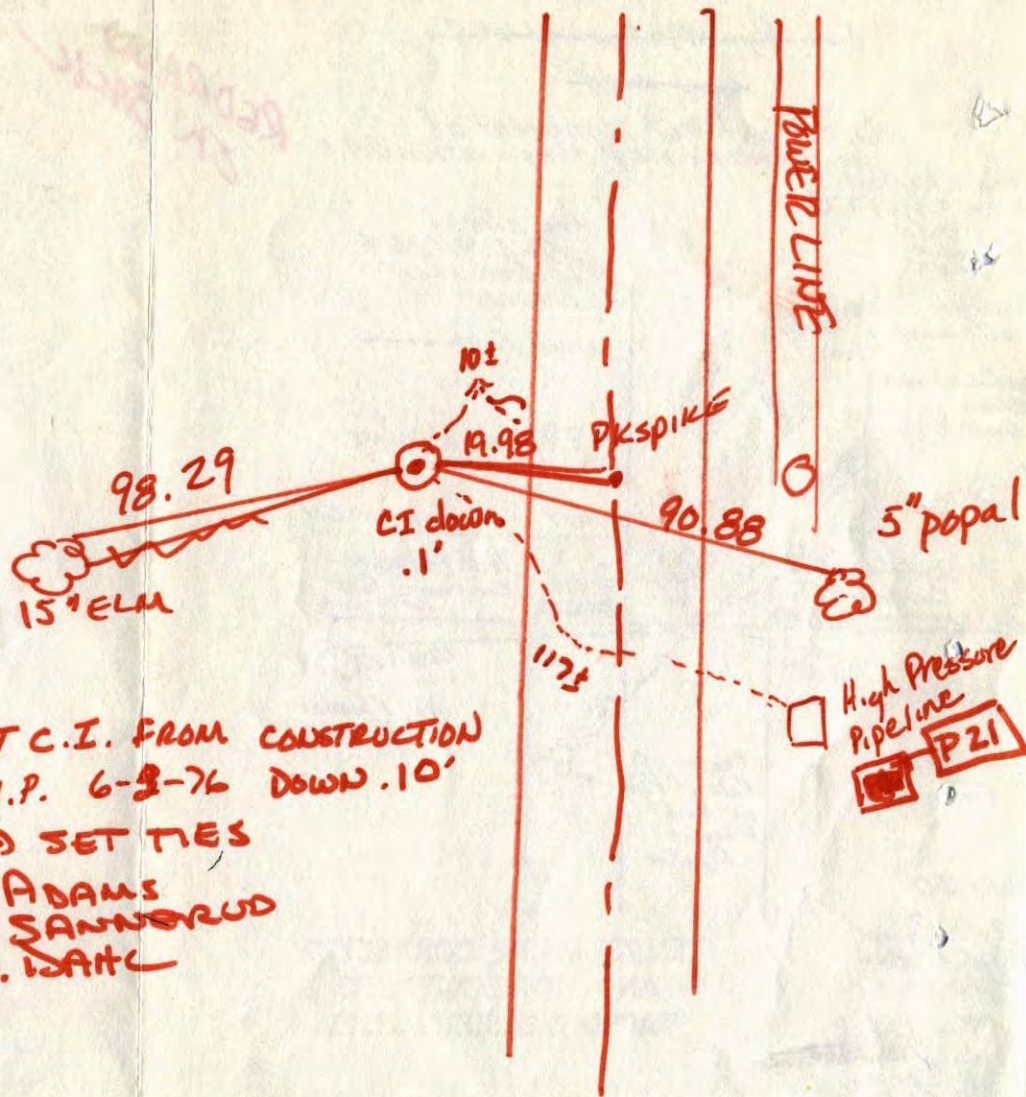 REDRAWN
ON BACK
POWER LINE
10±
19.98
PKSPIKE
98.29
CI down
.1'
90.88
5" popal
15" ELM
117±
High Pressure
Pipeline
P21
T C.I. FROM CONSTRUCTION
.P. 6-2-76 DOWN .10'
SET TIES
ADAMS
SANNERUD
DAHL